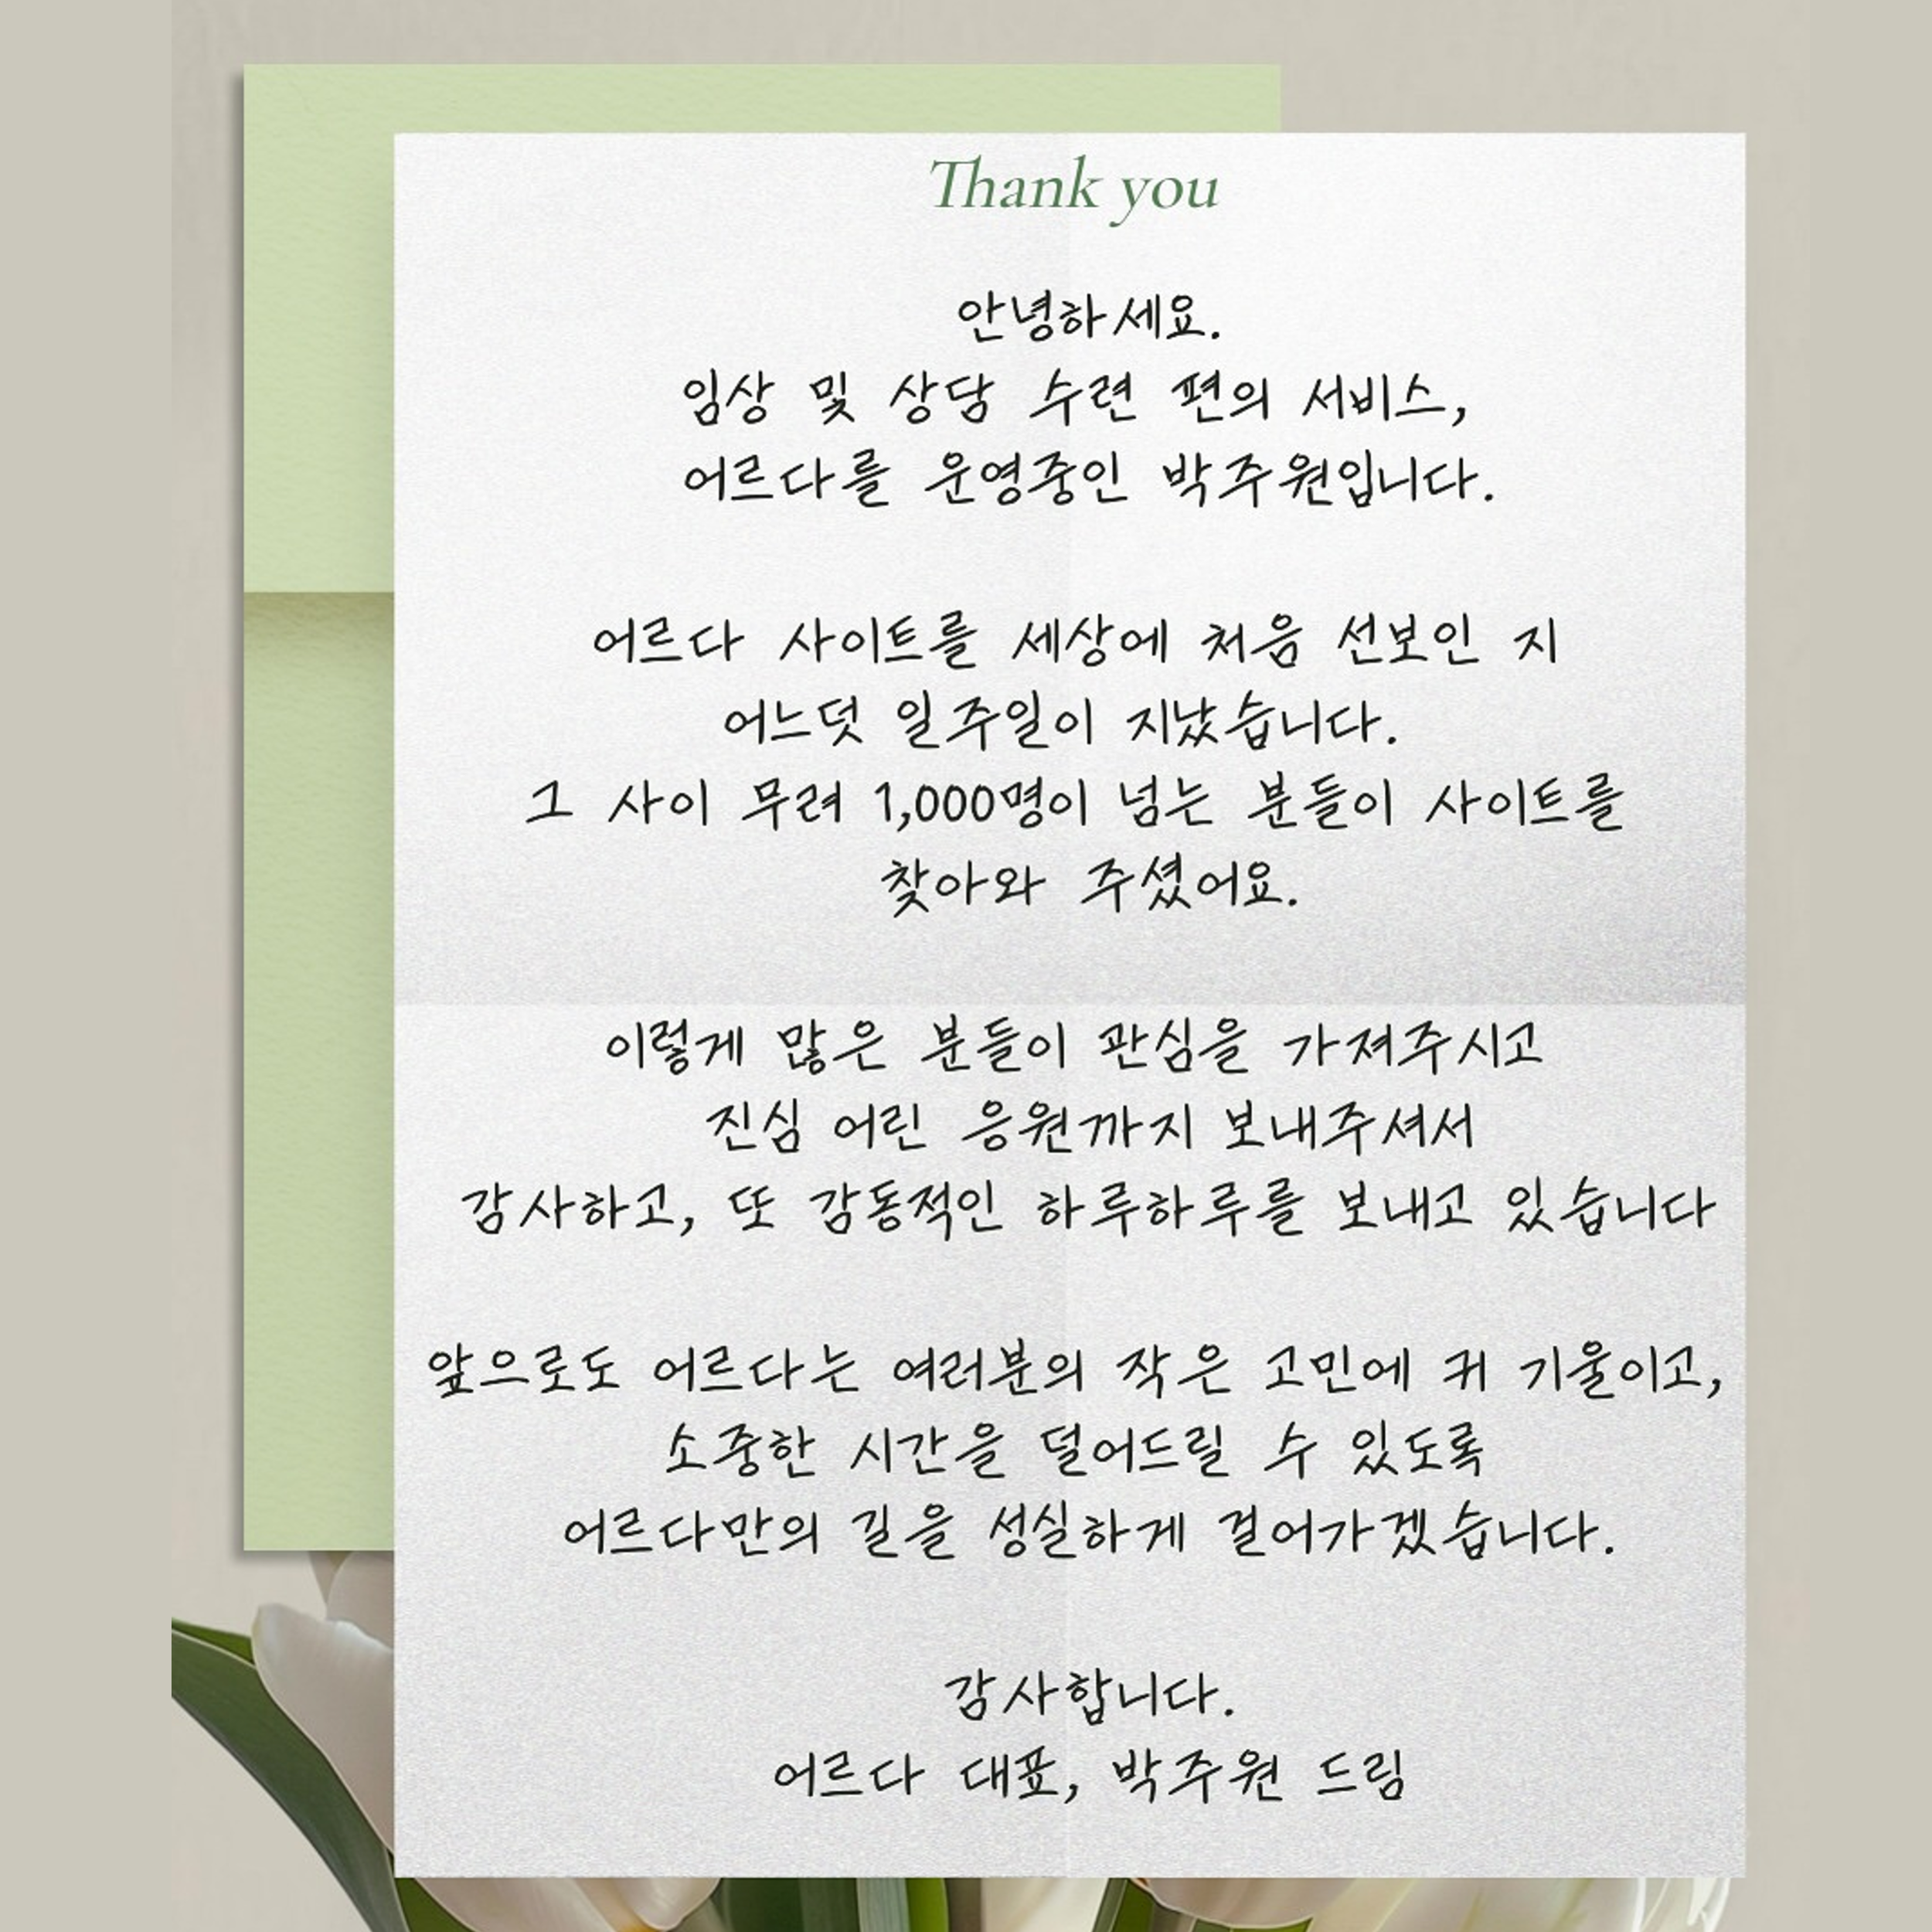 Thank you
안녕하세요.
임상 및 상담 수련 편의 서비스,
어르다를 운영중인 박주원입니다.
어르다 사이트를 세상에 처음 선보인 지
어느덧 일주일이 지났습니다.
그 사이 무려 1,000명이 넘는 분들이 사이트를
찾아와 주셨어요.
이렇게 많은 분들이 관심을 가져주시고
진심 어린 응원까지 보내주셔서
감사하고, 또 감동적인 하루하루를 보내고 있습니다
앞으로도 어르다는 여러분의 작은 고민에 귀 기울이고,
소중한 시간을 덜어드릴 수 있도록
어르다만의 길을 성실하게 걸어가겠습니다.
감사합니다.
어르다 대표, 박주원 드림